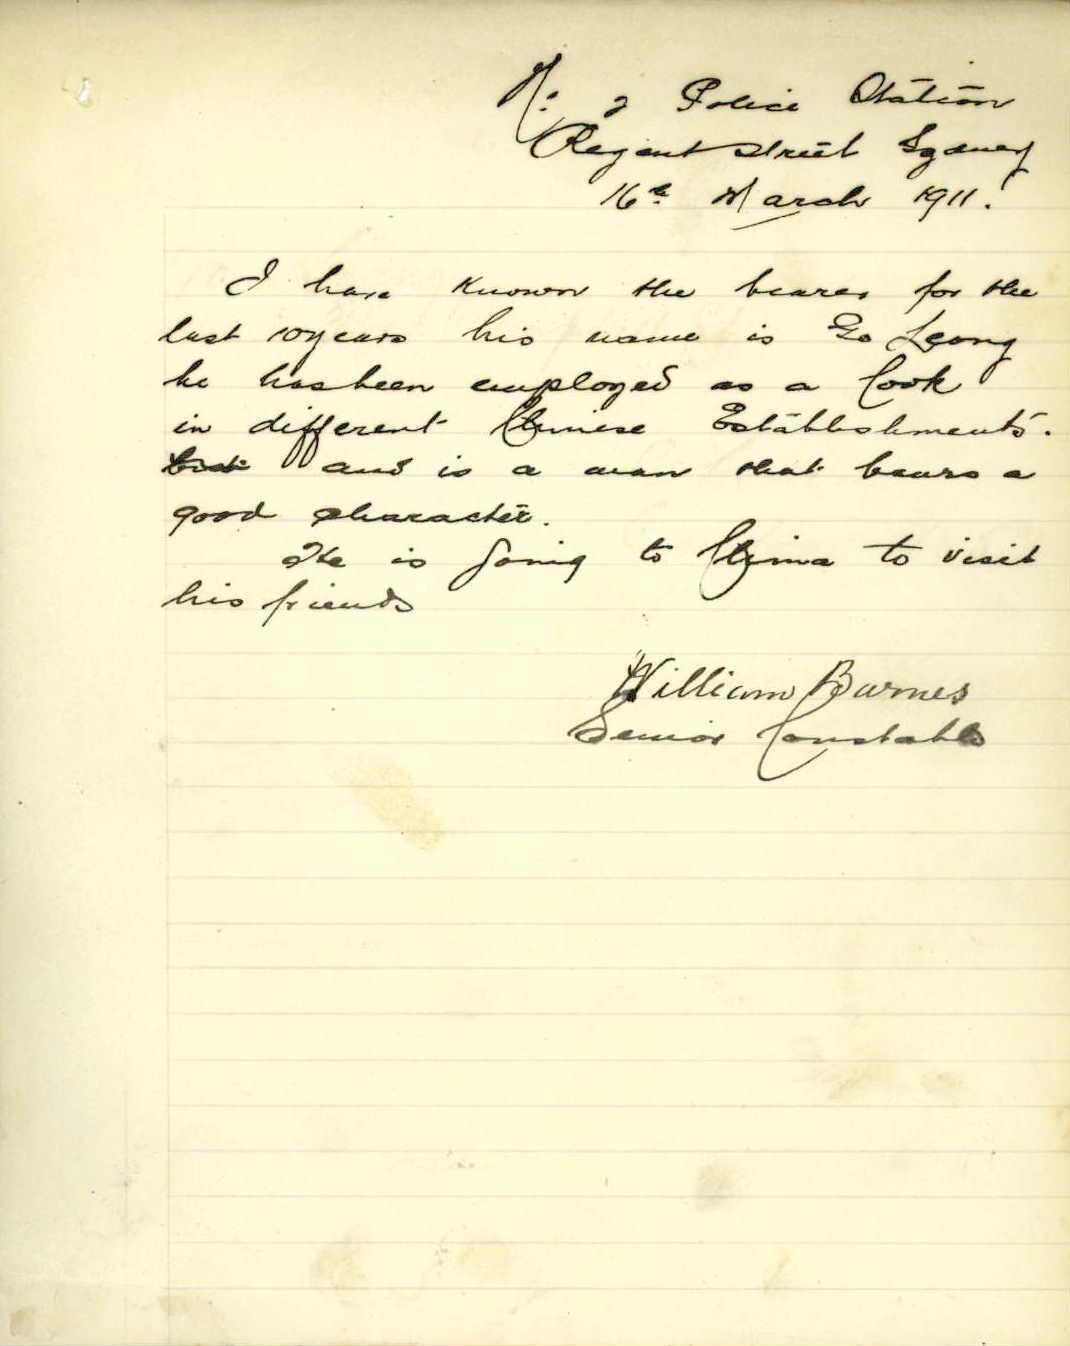 No: 2 Police Station
Regent Street Sydney
16th March 1911.
I have known the bearer for the
last 10 years his name is Go Leong
he has been employed as a Cook
in different Chinese Establishments.
and is a man that bears a
good character.
He is going to China to visit
his friends
William Barnes
Senior Constable